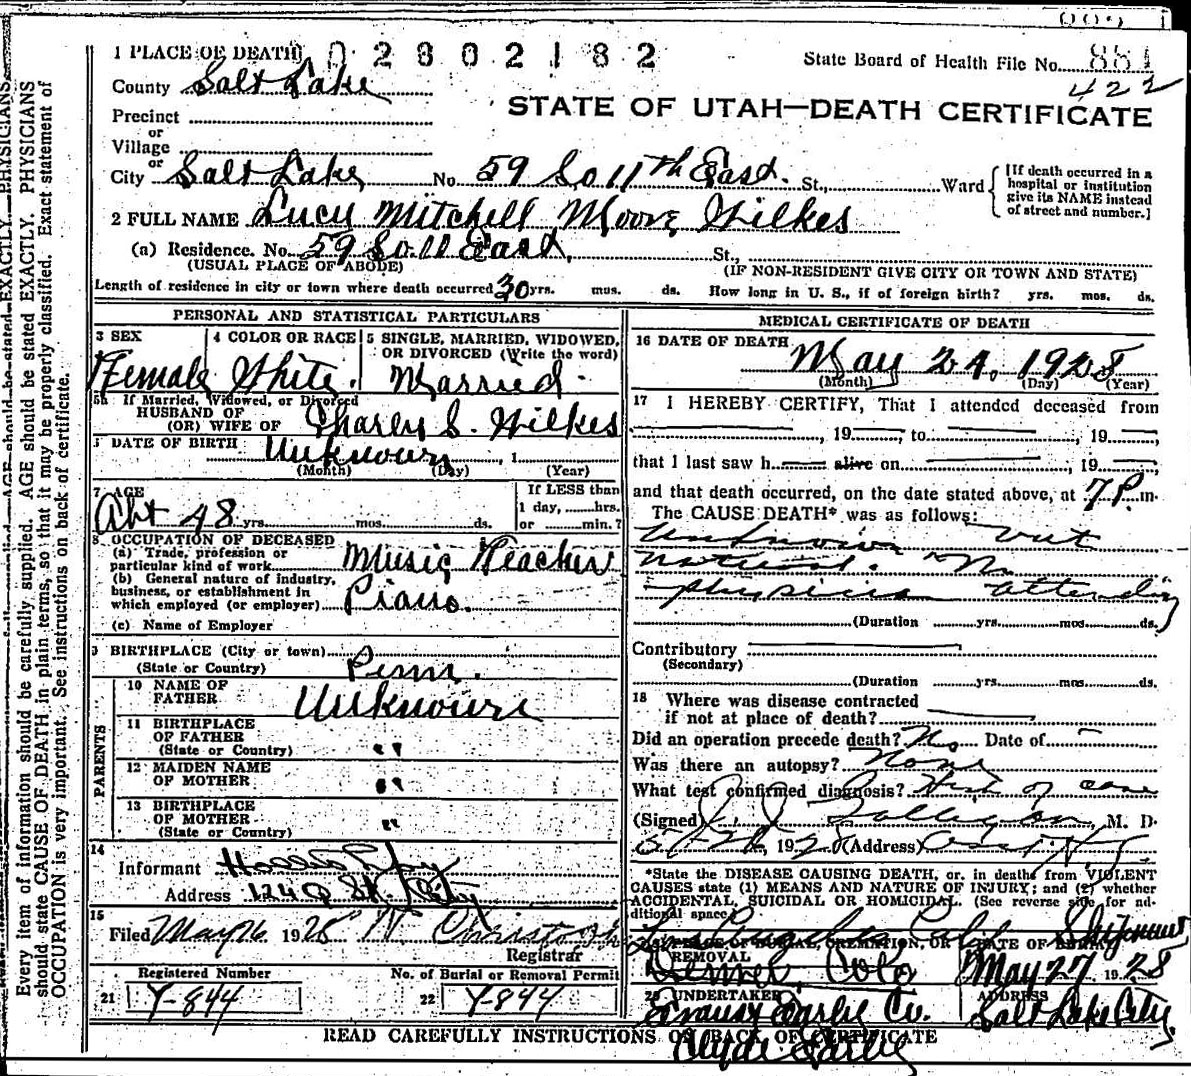 1 PLACE OF DEATH 02802182
State Board of Health File No. 881
422
County Salt Lake
STATE OF UTAH—DEATH CERTIFICATE
Precinct
or
Village
or
City Salt Lake No. 59 So 11th East. St., Ward
[If death occurred in a
hospital or institution
give its NAME instead
of street and number.]
2 FULL NAME Lucy Mitchell Moore Wilkes
(a) Residence. No. 59 So. 11 East, St.,
(USUAL PLACE OF ABODE) (IF NON-RESIDENT GIVE CITY OR TOWN AND STATE)
Length of residence in city or town where death occurred 30 yrs. mos. ds. How long in U. S., if of foreign birth? yrs. mos. ds.
PERSONAL AND STATISTICAL PARTICULARS
3 SEX
Female
4 COLOR OR RACE
White.
5 SINGLE, MARRIED, WIDOWED,
OR DIVORCED (Write the word)
Married
5a If Married, Widowed, or Divorced
HUSBAND OF
(OR) WIFE OF Charley S. Wilkes
DATE OF BIRTH Unknown, 1
(Month) (Day) (Year)
7 AGE
Abt 48 yrs. mos. ds.
If LESS than
1 day, hrs.
or min.?
8 OCCUPATION OF DECEASED
(a) Trade, profession or
particular kind of work Music Teacher
(b) General nature of industry,
business, or establishment in
which employed (or employer) Piano.
(c) Name of Employer
9 BIRTHPLACE (City or town)
(State or Country) Penn.
PARENTS
10 NAME OF
FATHER Unknown
11 BIRTHPLACE
OF FATHER
(State or Country) "
12 MAIDEN NAME
OF MOTHER "
13 BIRTHPLACE
OF MOTHER
(State or Country) "
14
Informant
Address 124 Q St. City
15
Filed May 26 1928
Registrar
Registered Number
21 Y-844
No. of Burial or Removal Permit
22 Y-844
MEDICAL CERTIFICATE OF DEATH
16 DATE OF DEATH
May 24. 1928
(Month) (Day) (Year)
17 I HEREBY CERTIFY, That I attended deceased from
, 19 , to , 19 ,
that I last saw h alive on , 19 ,
and that death occurred, on the date stated above, at 7 P. m.
The CAUSE DEATH* was as follows:
Unknown but
natural. No
physician attending
(Duration yrs. mos. ds.
Contributory
(Secondary)
(Duration yrs. mos. ds.
18 Where was disease contracted
if not at place of death?
Did an operation precede death? No Date of
Was there an autopsy? None
What test confirmed diagnosis? Hist of case
(Signed) , M. D.
1928 (Address)
*State the DISEASE CAUSING DEATH, or. in deaths from VIOLENT
CAUSES state (1) MEANS AND NATURE OF INJURY; and (2) whether
ACCIDENTAL, SUICIDAL OR HOMICIDAL. (See reverse side for ad-
ditional space)
Los Angeles Calif
PLACE OF BURIAL, CREMATION, OR
REMOVAL
Denver, Colo
DATE OF BURIAL
May 27 1928
20 UNDERTAKER
Co.
Clyde
ADDRESS
Salt Lake City
READ CAREFULLY INSTRUCTIONS ON BACK OF CERTIFICATE
Every item of information should be carefully supplied. AGE should be stated EXACTLY. PHYSICIANS
should state CAUSE OF DEATH in plain terms, so that it may be properly classified. Exact statement of
OCCUPATION is very important. See instructions on back of certificate.